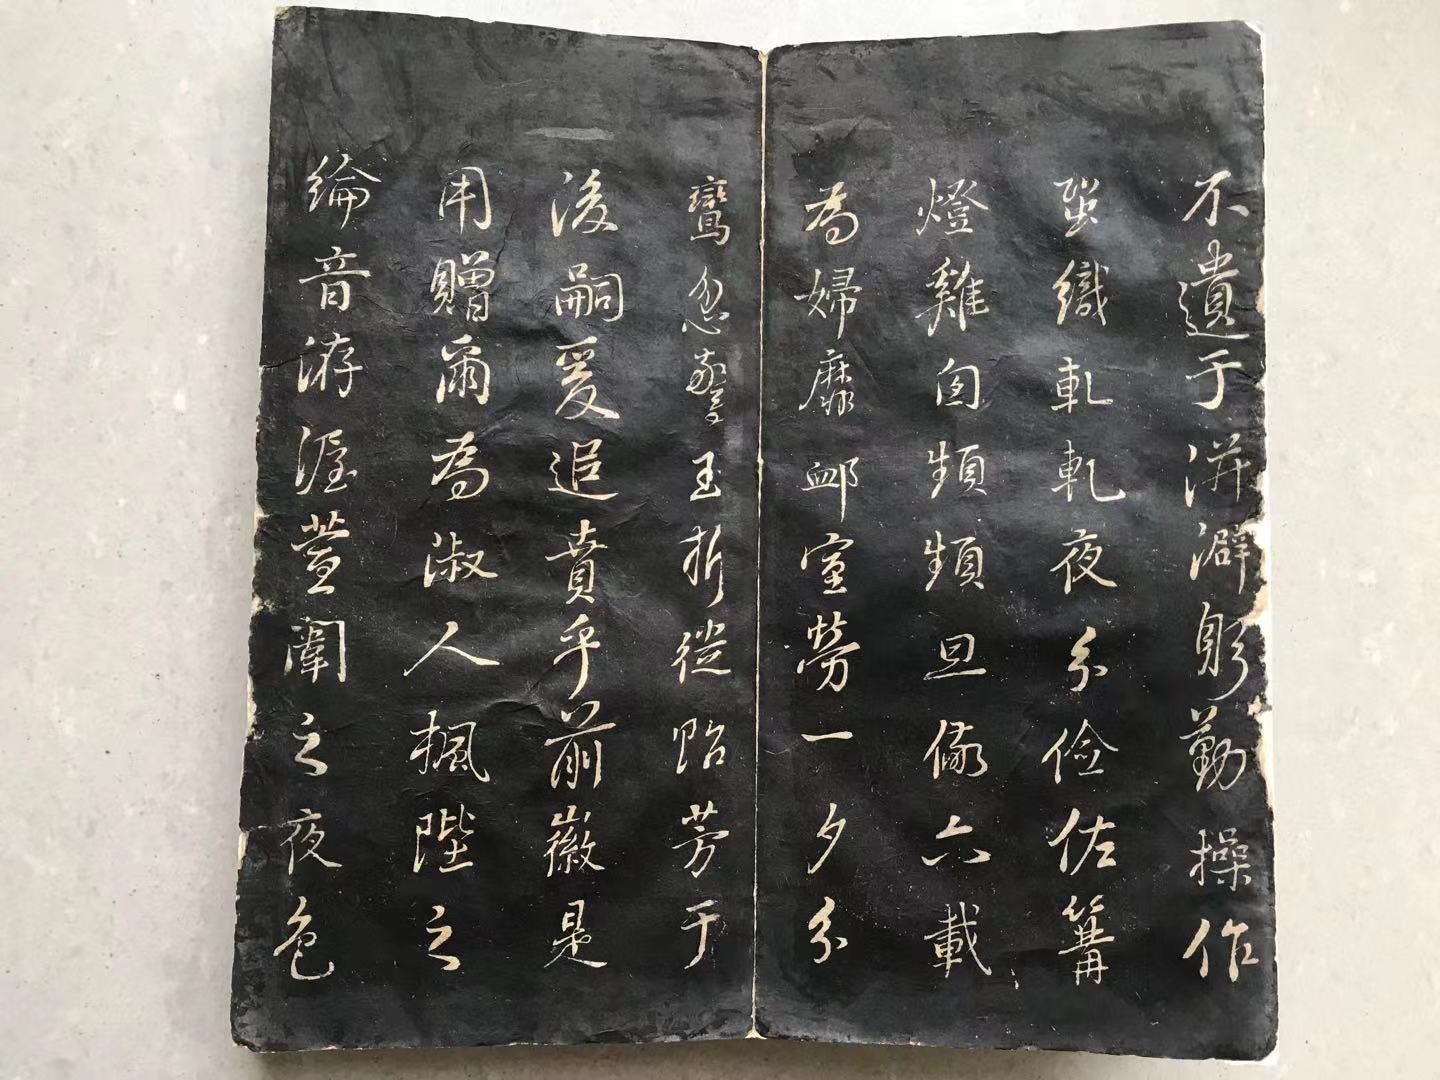 不遺于洴澼躬勤操作
蛩織軋軋夜分儉佐篝
燈雞囱頻頻旦儆六載
為婦靡卹室勞一夕分
鸞忽驚玉折從貽芳于
後嗣爰追賁乎前徽是
用贈爾為淑人楓陛之
綸音洊渥萱闈之夜色